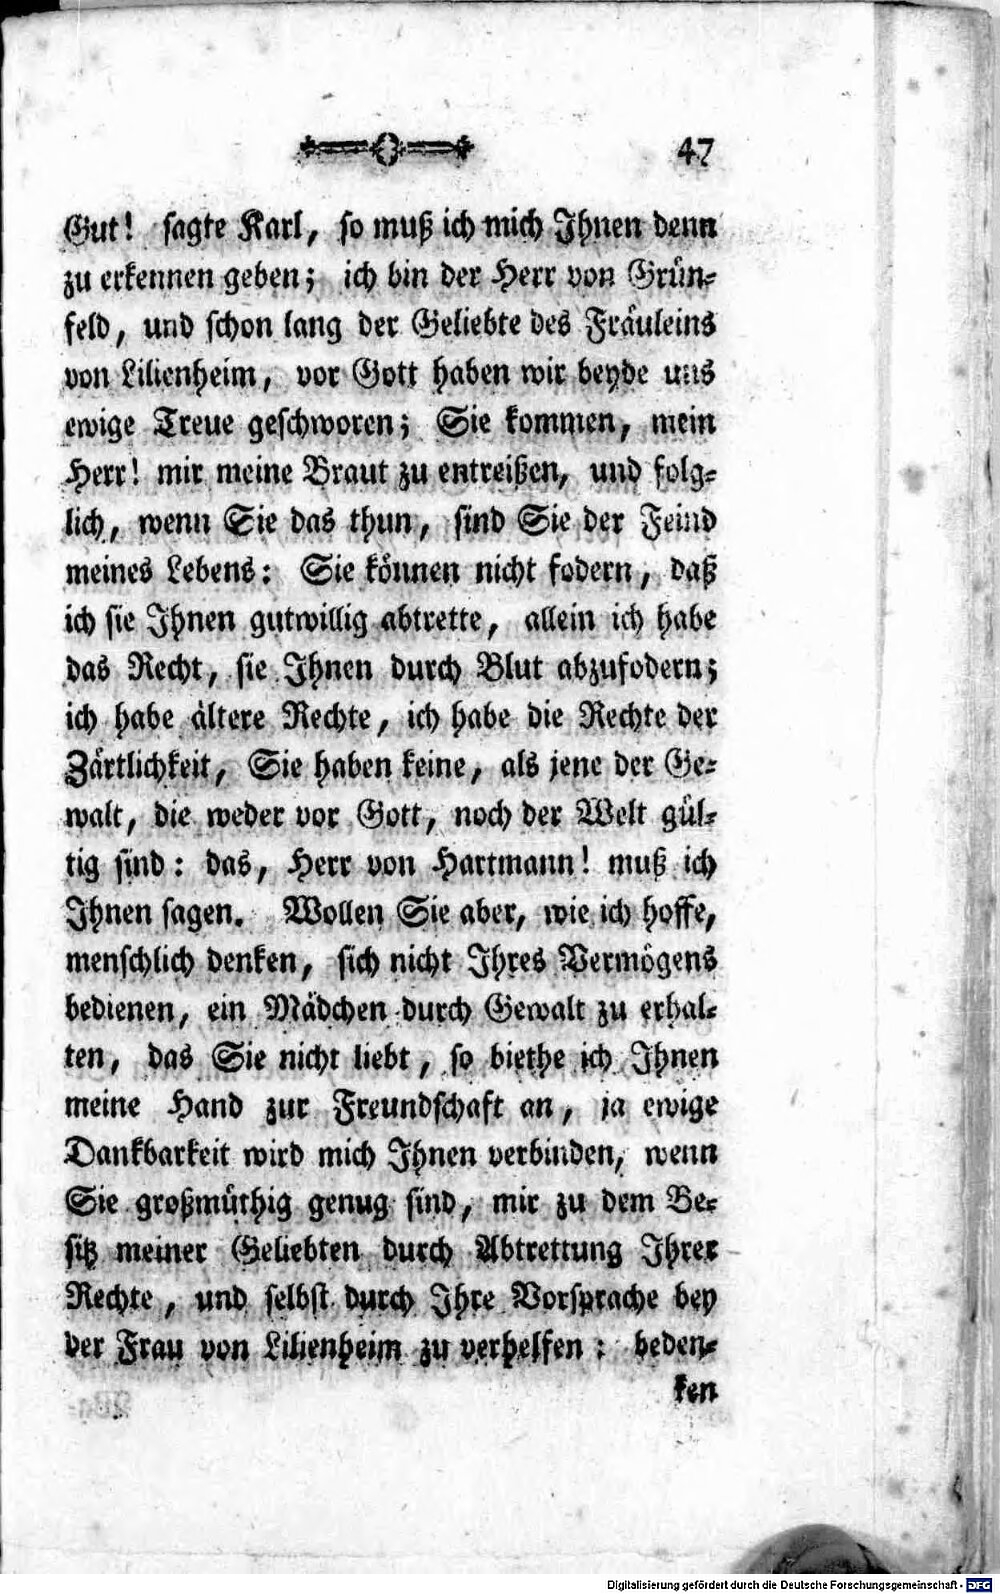 47
Gut! sagte Karl, so muß ich mich Ihnen denn
zu erkennen geben; ich bin der Herr von Grün-
feld, und schon lang der Geliebte des Fräuleins
von Lilienheim, vor Gott haben wir beyde uns
ewige Treue geschworen; Sie kommen, mein
Herr! mir meine Braut zu entreißen, und folg-
lich, wenn Sie das thun, sind Sie der Feind
meines Lebens: Sie können nicht fodern, daß
ich sie Ihnen gutwillig abtrette, allein ich habe
das Recht, sie Ihnen durch Blut abzufodern;
ich habe ältere Rechte, ich habe die Rechte der
Zärtlichkeit, Sie haben keine, als jene der Ge-
walt, die weder vor Gott, noch der Welt gül-
tig sind: das, Herr von Hartmann! muß ich
Ihnen sagen. Wollen Sie aber, wie ich hoffe,
menschlich denken, sich nicht Ihres Vermögens
bedienen, ein Mädchen durch Gewalt zu erhal-
ten, das Sie nicht liebt, so biethe ich Ihnen
meine Hand zur Freundschaft an, ja ewige
Dankbarkeit wird mich Ihnen verbinden, wenn
Sie großmüthig genug sind, mir zu dem Be-
sitz meiner Geliebten durch Abtrettung Ihrer
Rechte, und selbst durch Ihre Vorsprache bey
der Frau von Lilienheim zu verhelfen: beden-
ken
Digitalisierung gefördert durch die Deutsche Forschungsgemeinschaft - DFG